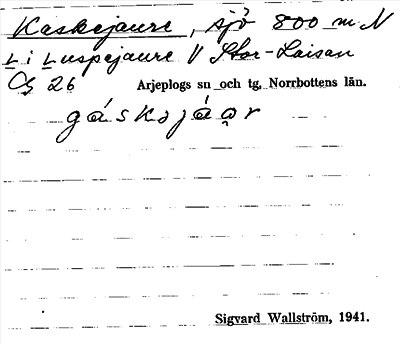 Kaskejaure, sjö 800 m N
L i Luspejaure V Stor-Laisan
Cg 26 Arjeplogs sn och tg, Norrbottens län.
gáskəjáǫr
Sigvard Wallström, 1941.